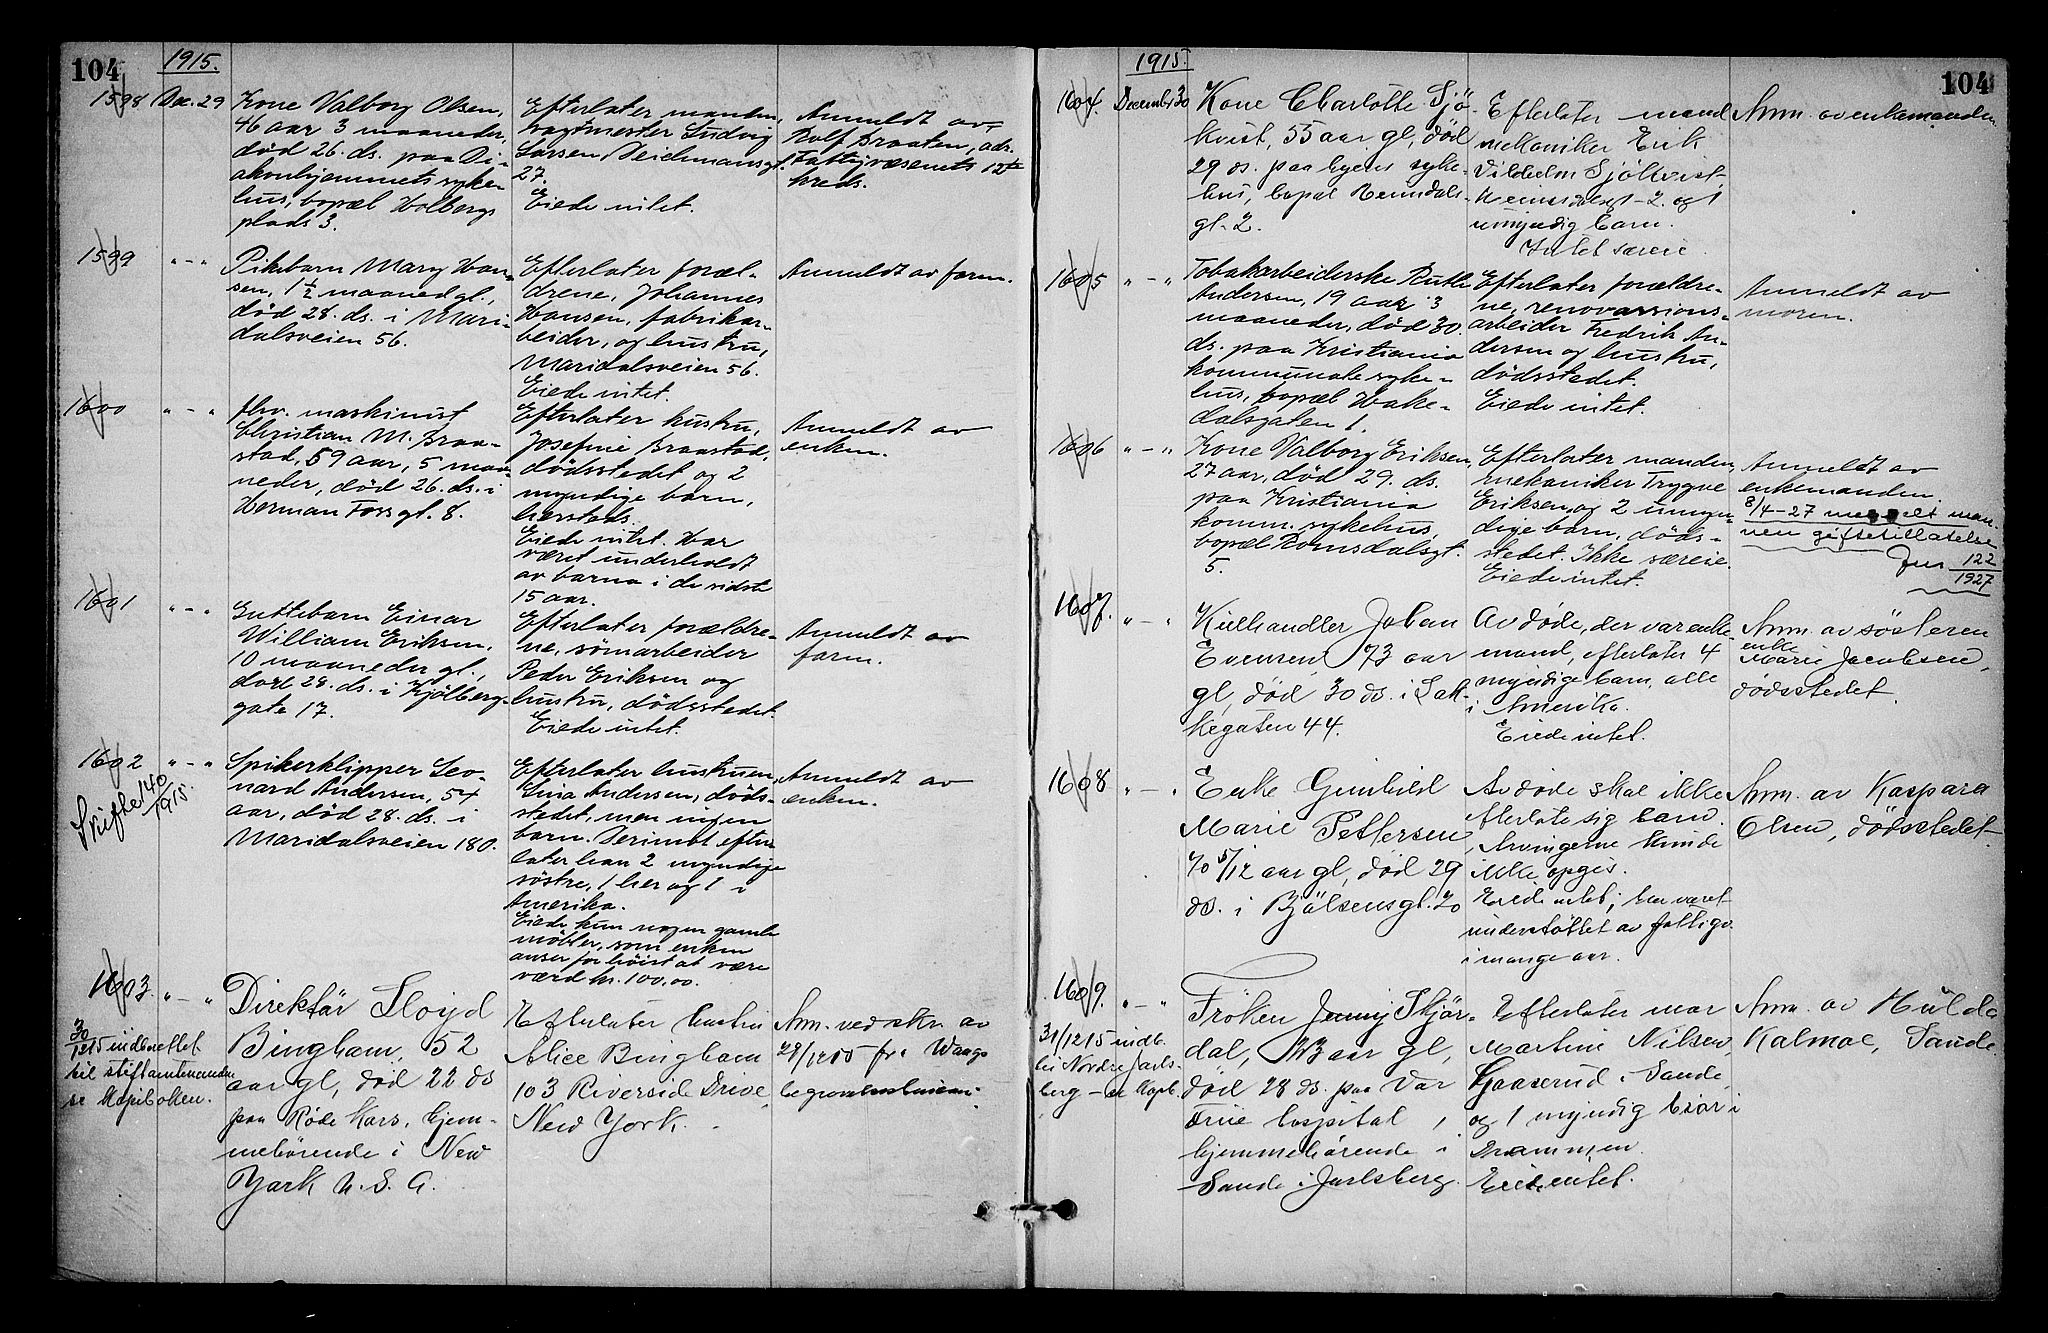 104
1915.
1598
Dec. 29
Kone Valborg Olsen,
46 aar 3 maaneder,
död 26. ds. paa Di-
akonhjemmets syke-
hus, bopæl Holbergs
plads 3.
Efterlater manden,
vagtmester Ludvig
Larsen, Deichmansgt.
27.
Eiede intet.
Anmeldt av
Rolf Braaten, adr.
Fattigvæsenets 12te
kreds.
1599
" - "
Pikebarn Mary Han-
sen, 1 1/2 maaned gl.,
död 28. ds. i Mari-
dalsveien 56.
Efterlater foræl-
drene, Johannes
Hansen, fabrikar-
beider, og hustru,
Maridalsveien 56.
Eiede intet.
Anmeldt av faren.
1600
" - "
fhv. maskinist
Christian M. Braa-
stad, 59 aar, 5 maa-
neder, död 26. ds. i
Herman Fossgt. 8.
Efterlater hustru,
Josefine Braastad,
dödsstedet og 2
myndige barn,
hersteds.
Eiede intet. Har
været underholdt
av barna i de sidste
15 aar.
Anmeldt av
enken.
1601
" - "
Guttebarn Einar
William Eriksen,
10 maaneder gl.,
död 28. ds. i Kjölberg-
gate 17.
Efterlater forældre-
ne, sömarbeider
Peder Eriksen og
hustru, dödsstedet.
Eiede intet.
Anmeldt av
faren.
1602
" - "
Skifte 140/1915.
Spikerklipper Leo-
nard Andersen, 54
aar, död 28. ds. i
Maridalsveien 180.
Efterlater hustruen,
Lina Andersen, döds-
stedet, men ingen
barn. Derimot efter-
later han 2 myndige
söstre, 1 her og 1 i
Amerika.
Eiede kun nogen gamle
möbler, som enken
anser for höist at være
værd kr. 100.00.
Anmeldt av
enken.
1603.
" - "
30/12 15 indberettet
til stiftamtmanden
se Kopiboken.
Direktör Lloyd
Bingham, 52
aar gl, död 22 ds
paa Röde Kors, hjem-
mehörende i New
York U. S. A.
Efterlater hustru
Alice Bingham
103 Riverside Drive,
New York.
Anm. ved skr. av
29/12 15 fra Waags
begravelsesbureau.
104
1915.
1604.
December 30
Kone Charlotte Sjö-
kvist, 55 aar gl, död
29 ds. paa byens syke-
hus, bopæl Reimsdals-
gt. 2.
Efterlater mand
mekaniker Erik
Vilhelm Sjökvist
Reimsdalsgt-2. og 1
umyndig barn.
Intet særeie
Anm. av enkemanden
1605
" - "
Tobakarbeiderske Ruth
Andersen, 19 aar 3
maaneder, död 30.
ds. paa Kristiania
kommunale syke-
hus, bopæl Hake-
dalsgaten 1.
Efterlater forældre-
ne, renovasions-
arbeider Fredrik An-
dersen og hustru,
dödsstedet.
Eiede intet.
Anmeldt av
moren.
1606
" - "
Kone Valborg Eriksen,
27 aar, död 29. ds.
paa Kristiania
komm. sykehus,
bopæl Romsdalsgt.
5.
Efterlater manden,
mekaniker Trygve
Eriksen og 2 umyn-
dige barn, döds-
stedet. Ikke særeie.
Eiede intet.
Anmeldt av
enkemanden.
8/4-27 meddelt man-
nen giftetillatelse
Jnr 122/1927
1607.
" - "
Kulhandler Johan
Evensen, 73 aar
gl, död 30 ds. i Lak-
kegaten 44.
Avdöde, der var enke-
mand, efterlater 4
myndige barn, alle
i Amerika.
Eiede intet.
Anm. av sösteren
enke
Marie Jacobsen,
dödsstedet.
1608
" - "
Enke Gunhild
Marie Pettersen,
70 5/12 aar gl, död 29
ds. i Bjölsensgt. 20
Avdöde skal ikke
efterlate sig barn.
Arvingerne kunde
ikke opgis.
Eiede intet; har været
understöttet av fattigv.
i mange aar.
Anm. av Kaspara
Olsen, dödsstedet.
1609.
" - "
31/12 15 indb.
til Nordre Jarls-
berg - se Kopib.
Fröken Jenny Skjör-
dal, 23 aar gl,
död 28 ds. paa Vor
Frue hospital,
hjemmehörende i
Sande i Jarlsberg.
Efterlater mor
Martine Nilsen,
Gaaserud i Sande,
og 1 myndig bror i
Drammen.
Eiede intet.
Anm. av Hulda
Kalmoe, Sande